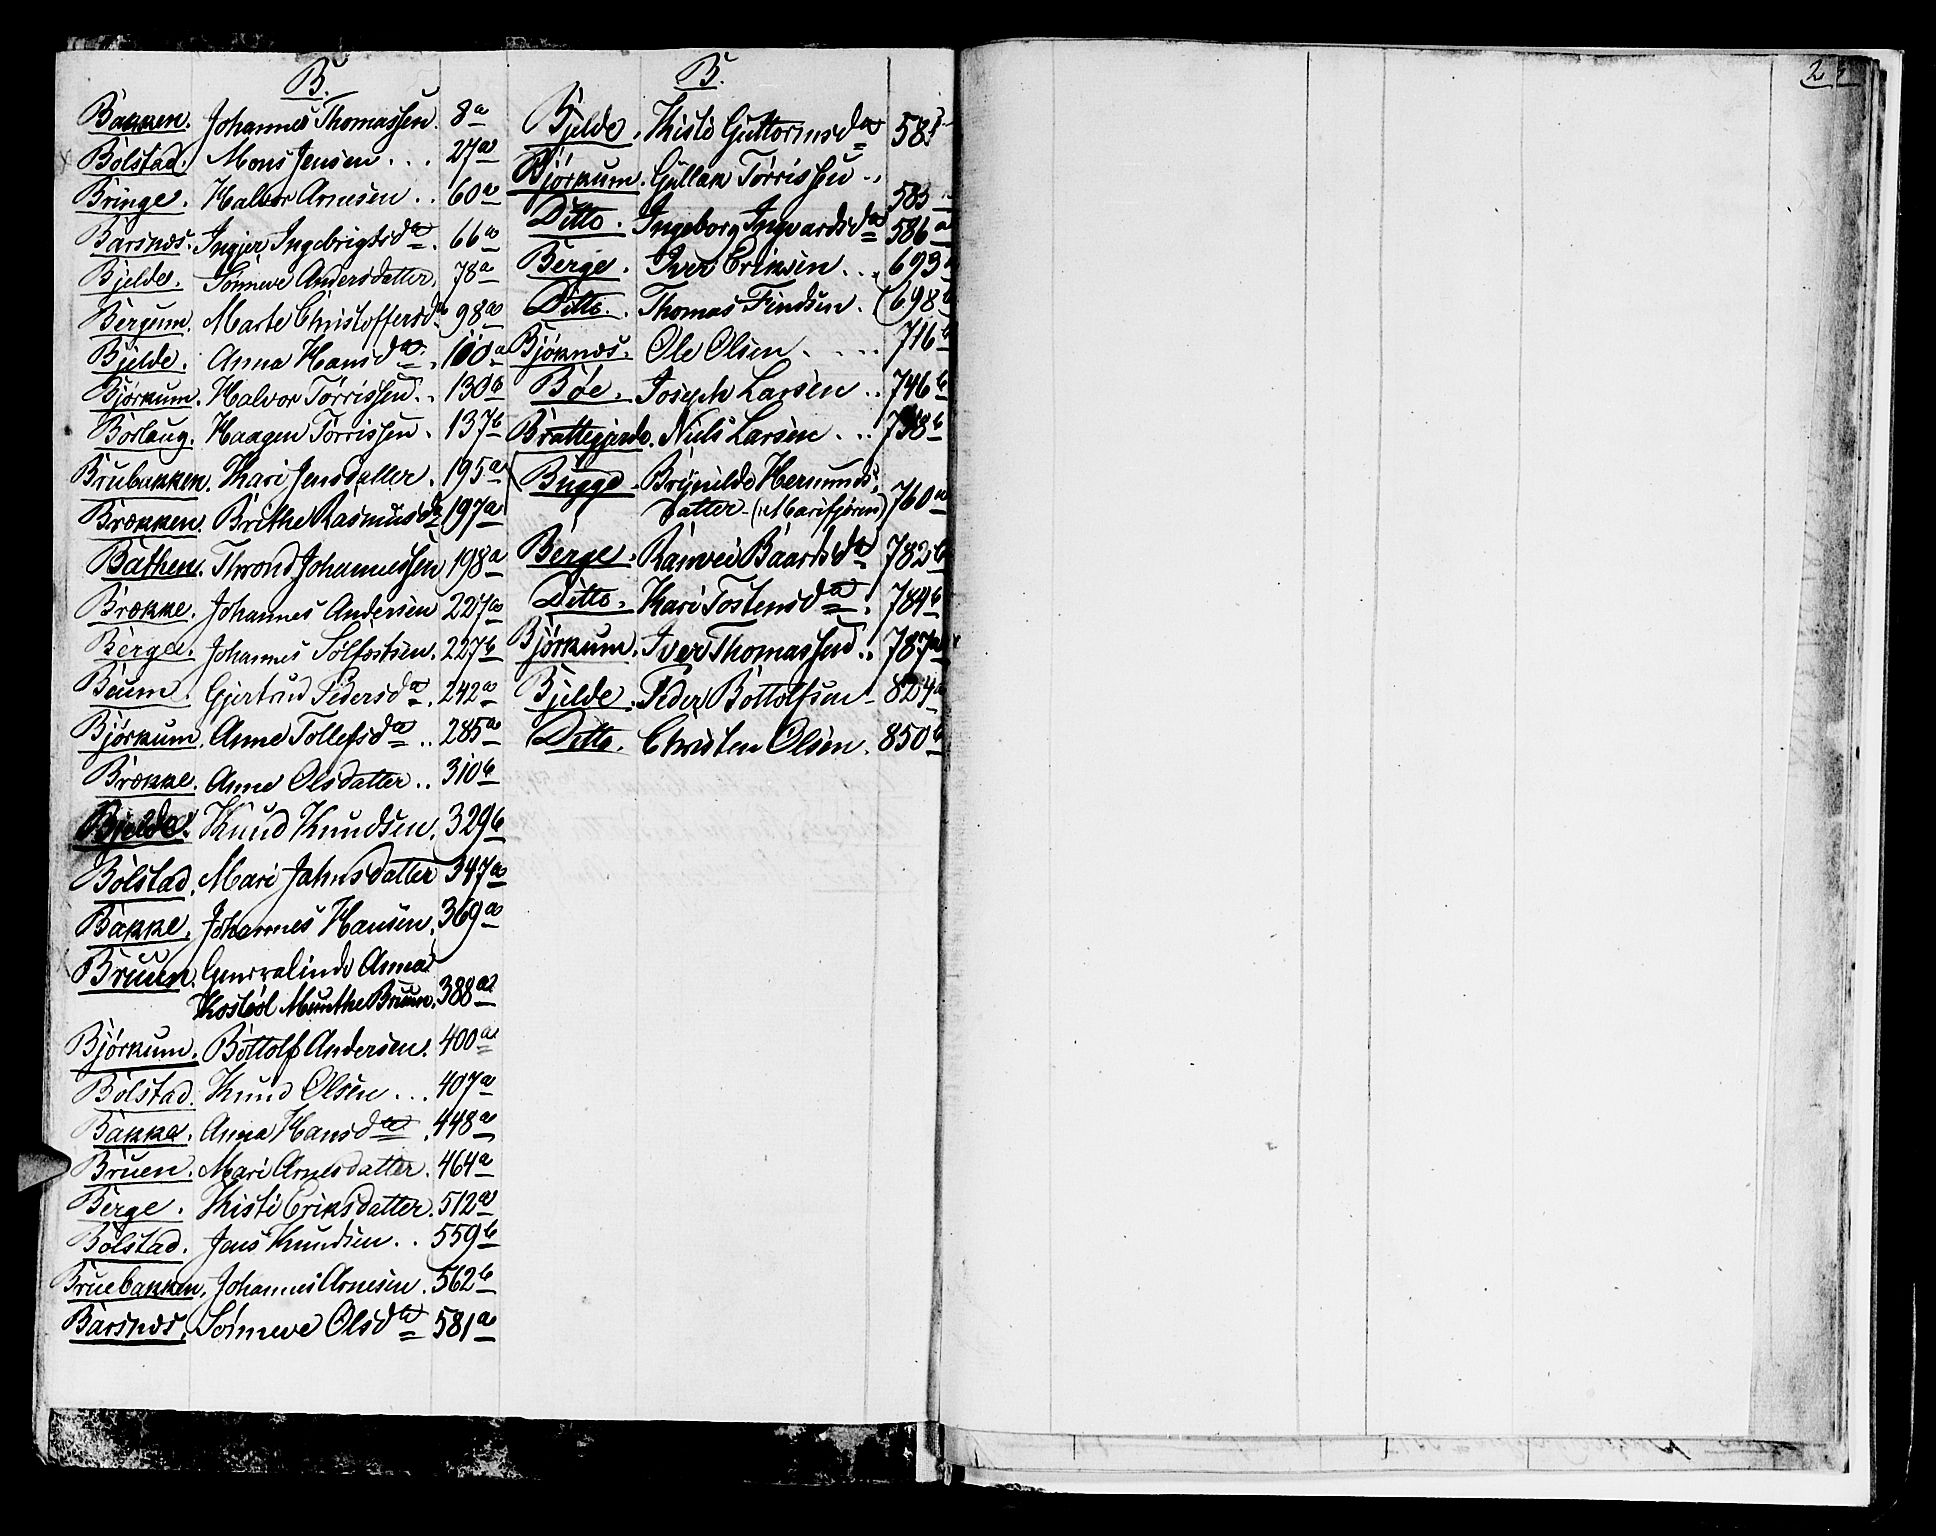 B.
Bakken. Johannes Thomassen. 8a
Bolstad. Mons Jensen . . . 27a
Bringe. Halvor Arnesen . . 60a
Barsnæs. Ingjer Ingebrigtsda. 66a
Bjelde. Sönneve Andersdatter. 78a
Bergum. Marte Christoffersd. 98a
Bjelde. Anna Hansda. 100a
Björkum. Halvor Törrissen . . 130b
Borlaug. Haagen Törrissen . 137b
Bruebakken. Kari Jensdatter. 195a
Brækken. Brithe Rasmusda 197a
Bathen. Thrond Johannessen 198a
Brække. Johannes Andersen 227a
Berge. Johannes Sölfestsen. 227b
Beum. Gjertrud Pedersda. 242a
Björkum. Anne Tollefsda . . 285a
Brække. Anne Olsdatter . . 310b
Bjelde. Knud Knudsen. 329b
Bolstad. Mari Jahnsdatter 347a
Bakke. Johannes Hansen. 369a
Bruun. Generalinde Anna
Munthe Bruun. 388a
Björkum. Bottolf Andersen. 400a
Bolstad. Knud Olsen . . . 407a
Bakke. Anna Hansda. 448a
Bruen. Mari Arnesdatter. 464a
Berge. Kisti Eriksdatter. 512a
Bolstad. Jens Knudsen . . 559b
Bruebakken. Johannes Arnesen. 562b
Barsnæs. Sönneve Olsda 581a
B.
Bjelde. Kisti Guttormsda 58
Björkum. Gullak Törrissen . . 583
Ditto. Ingeborg Ingvardsda 586a
Berge. Iver Eriksen . . . 693
Ditto. Thomas Findsen. 698b
Björknæs. Ole Olsen . . . . 716b
Böe. Joseph Larsen . . 746b
Brattegjerde. Niels Larsen . . . 758b
Bugge. Brynilde Hermunds-
datter (i Marifjören) 760a
Berge. Ranvei Baardsda 782b
Ditto. Kari Tostensda. 784b
Björkum. Iver Thomassen . . 787a
Bjelde. Peder Bottolfsen - 824a
Ditto. Christen Olsen. 850b
2